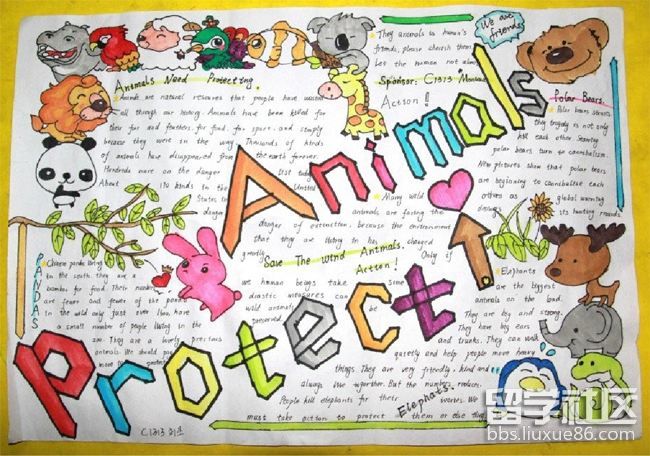 Animals Need Protecting.
Animals are natural resources that people have wasted
all through our history. Animals have been killed for
their fur and feathers, for food, for sport, and simply
because they were in the way. Thousands of kinds
of animals have disappeared from the earth forever.
Hundreds more are on the danger list today
About 170 kinds in the United
States in
danger
They animals is human's
friends, please cherish them
Let the human not alone
Sponsor: C1313
Action!
We are
friends
Polar Bears
Polar bears
they tragedy is not only
kill each other starving
polar bears turn to cannibalism.
New pictures show that polar bears
are beginning to cannibalise each
others as global warming
destroys its hunting grounds
Animals
Protect
Many wild
animals are facing the
danger of extinction, because the environment
that they are living in has changed
greatly. Only if
Save The wind Animals.
Action!
we human beings take some
drastic measures can
wild animals be
preserved.
PANDAS
Chinese panda living
in the south. they are a
bamboo for food. Their number
are fewer and fewer of the panda
in the wild only just over have
a small number of people living in the
They are a lovely precious
animals. We should pay
more
Elephants
are the biggest
animals on the land.
They are big and strong.
They have big ears
and trunks. They can walk
quietly and help people move heavy
things. They are very friendly, kind and
always live together. But the number reduces.
People kill elephants for their ivories. We
must take action to protect them or else they
Elephats!
C1313
留学社区
bbs.liuxue86.com